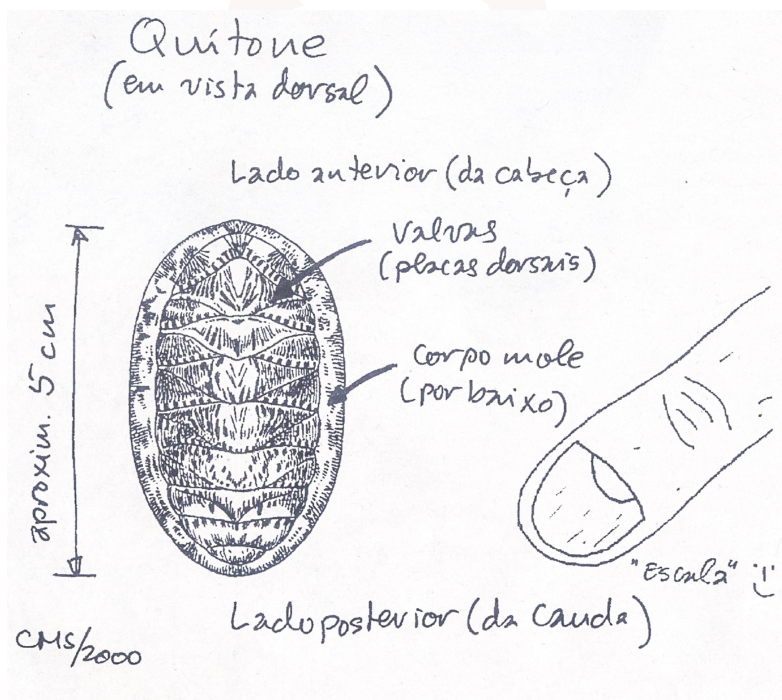 Quítone
(em vista dorsal)
Lado anterior (da cabeça)
valvas
(placas dorsais)
corpo mole
(por baixo)
aproxim. 5 cm
"Escala" :)
Lado posterior (da cauda)
CMS/2000